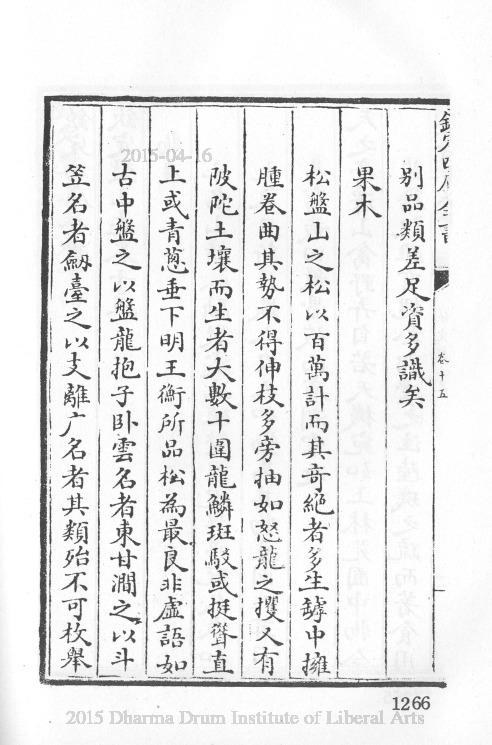 欽定四庫全書
卷十五
別品類差足資多識矣
果木
松盤山之松以百萬計而其奇絕者多生罅中擁
腫卷曲其勢不得伸枝多旁抽如怒龍之攫又有
陂陀土壤而生者大數十圍龍鱗斑駮或挺聳直
上或青蔥垂下明王衡所品松為最良非虛語如
古中盤之以盤龍抱子卧雲名者東甘澗之以斗
笠名者劒臺之以支離广名者其類殆不可枚舉
2015-04-16
1266
2015 Dharma Drum Institute of Liberal Arts